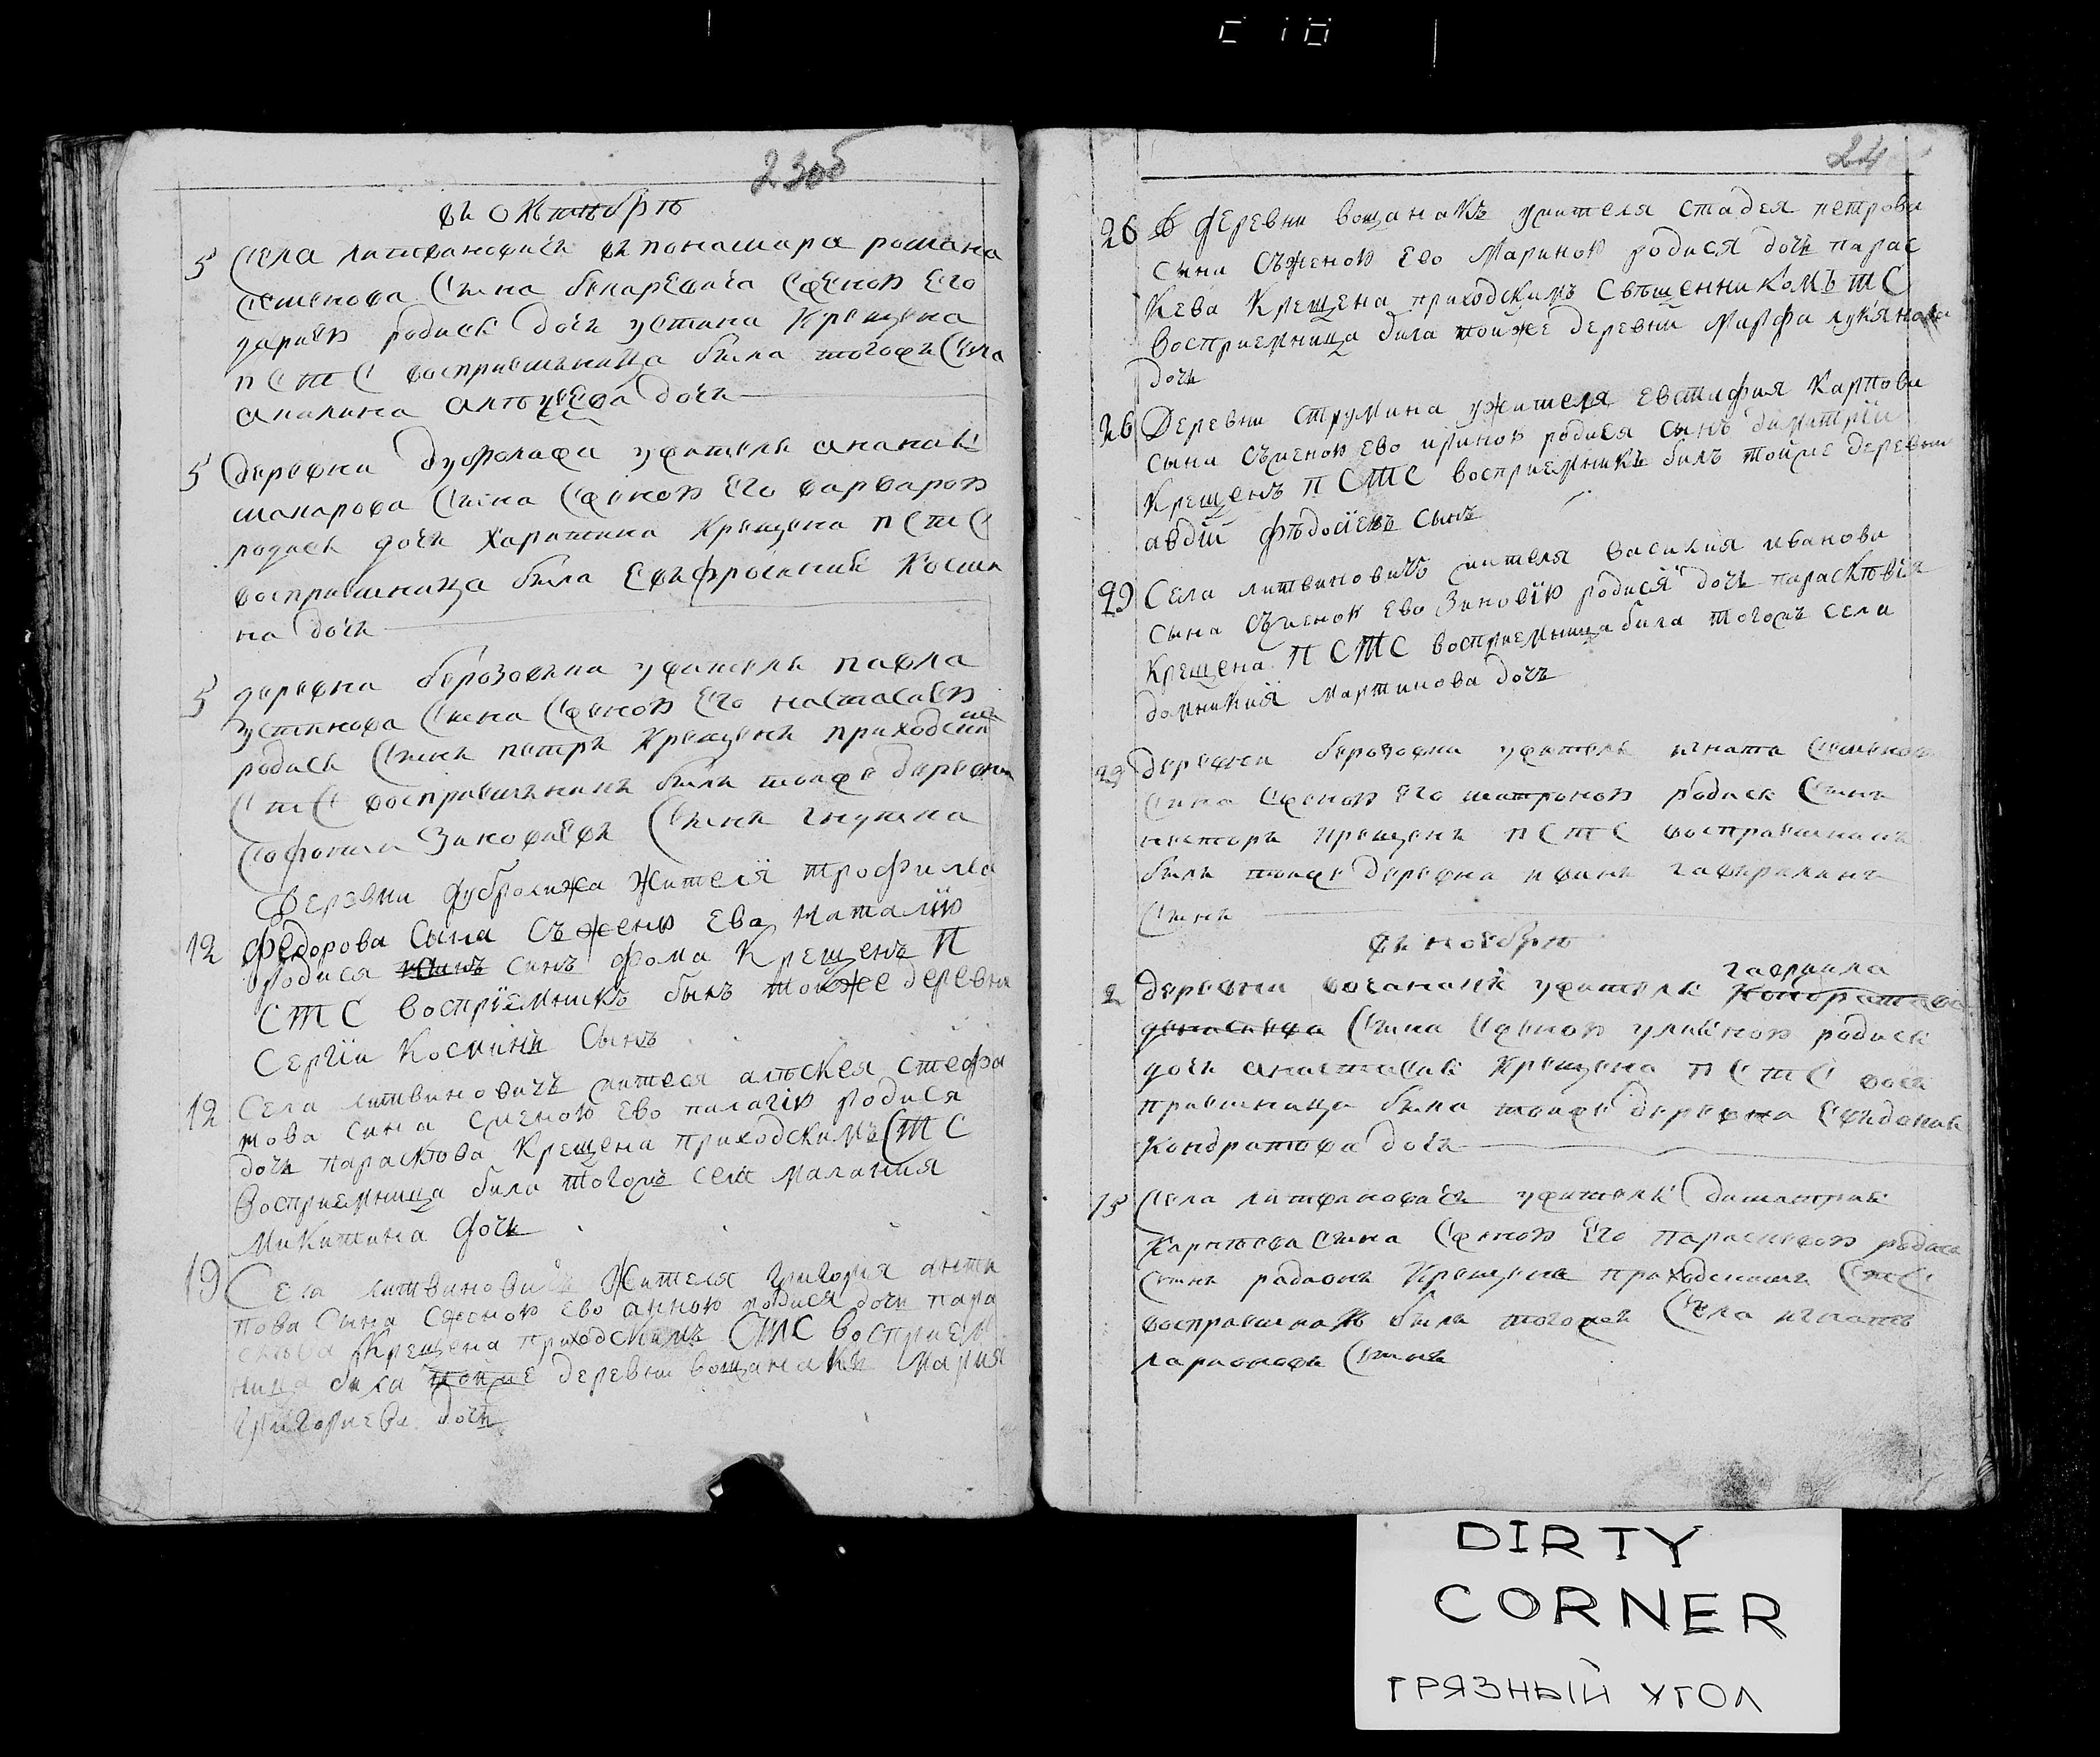 23об
въ октябрѣ
5 Села литвиновичъ въ понамара романа
семенова Сына бекаревича Сженою Его
дариею родись дочь устина Крещена
п С т С восприемница была тогожъ Села
акилина алпуеева дочь
5 деревни дубролифа ужителя анания
макарова Сына Сженою Его варварою
родись дочь Харитина Крещена п С т С
восприемница была Евфросиния Косми
на дочь
5 деревни березовки ужителя павла
Устинова Сына Сженою Его настасиею
родись Сынъ петръ Крещенъ приходским
С т С восприемникъ былъ тояже деревни
Софонии Зиновиевъ Сынъ
Деревни дубролижа Жителя трофима
12 Федорова Сына Съженю Ево Наталию
родися синъ фома Крещенъ П
С Т С воспрїемникъ быкъ тойже деревни
Сергїи Косминъ Сынъ
12 Села литвиновичъ жителя алѣксея стефа
нова Сина Сженою Ево палагию родися
дочь парасковя Крещена приходскимъ С Т С
Восприемница била Тогожъ села Малания
Микитина дочь
19 Села литвиновичъ Жителя григория анти
пова Сына Сженою ево анною родися дочь пара
скова Крещена приходскимъ СТС восприем
ница била тойже деревни вощанакъ Мария
Григориева дочь
24
26 В деревни вощанакъ ужителя стадея петрова
сына Съженою Ево Мариною родися дочь парас
кева Крещена приходскимъ Свѣшенникомъ Т С
восприемница била тойже деревни Марфа лукянова
дочь
26 Деревни струмина ужителя Евстифия Карпова
сына Съженою Ево ириною родися сынъ димитрїи
Крещенъ П С Т С восприемникъ билъ тойже деревни
авдїи фѣдосїевъ Сынъ
29 Села литвиновичъ жителя василия иванова
сына Съженою Ево Зиновїю родися дочь парасковїя
крещена П С Т С восприемница била тогожъ села
домникия мартинова дочь
29 деревни березовки ужителя игната Семенова
Сина Сженою Его матроною родися Сынъ
несторъ крещенъ п С т С восприемникъ
былъ тояже деревни иванъ гавриленъ
Сынъ
въ ноебрѣ
гавриила
2 деревни вощанакъ ужителя Кондратова
Сына Сженою улияною родися
дочь анастасия Крещена п С т С вось
приемница была тояже деревни Евдокия
Кондратова дочь
15 Села литвиновичъ ужителя димитрия
Карпѣева сина Сженою Его Параскивою родися
Сынъ радионъ Крещенъ приходскимъ СтС
восприемникъ былъ тогожъ Села игнатъ
ларионовъ Синъ
DIRTY
CORNER
ГРЯЗНЫЙ УГОЛ